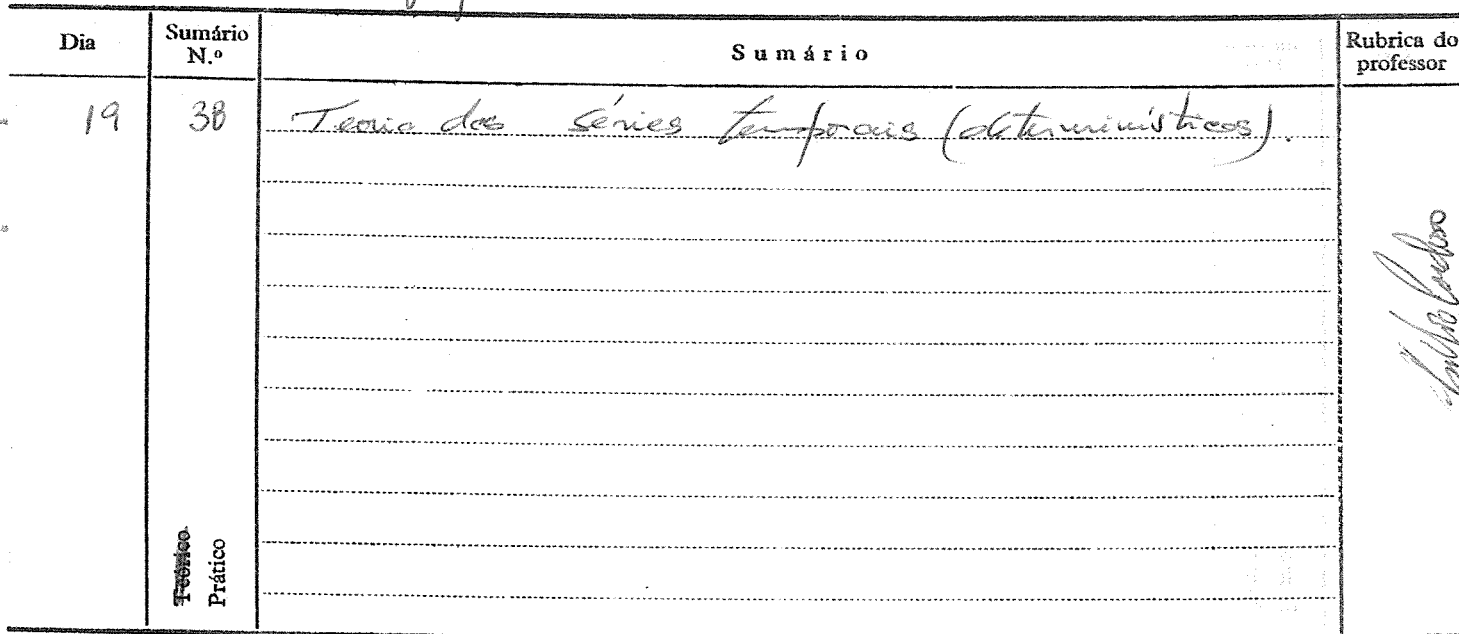 Dia
Sumário N.º
Sumário
Rubrica do professor
19
38
Teoria das séries temporais (determinísticas).
Teórico
Prático